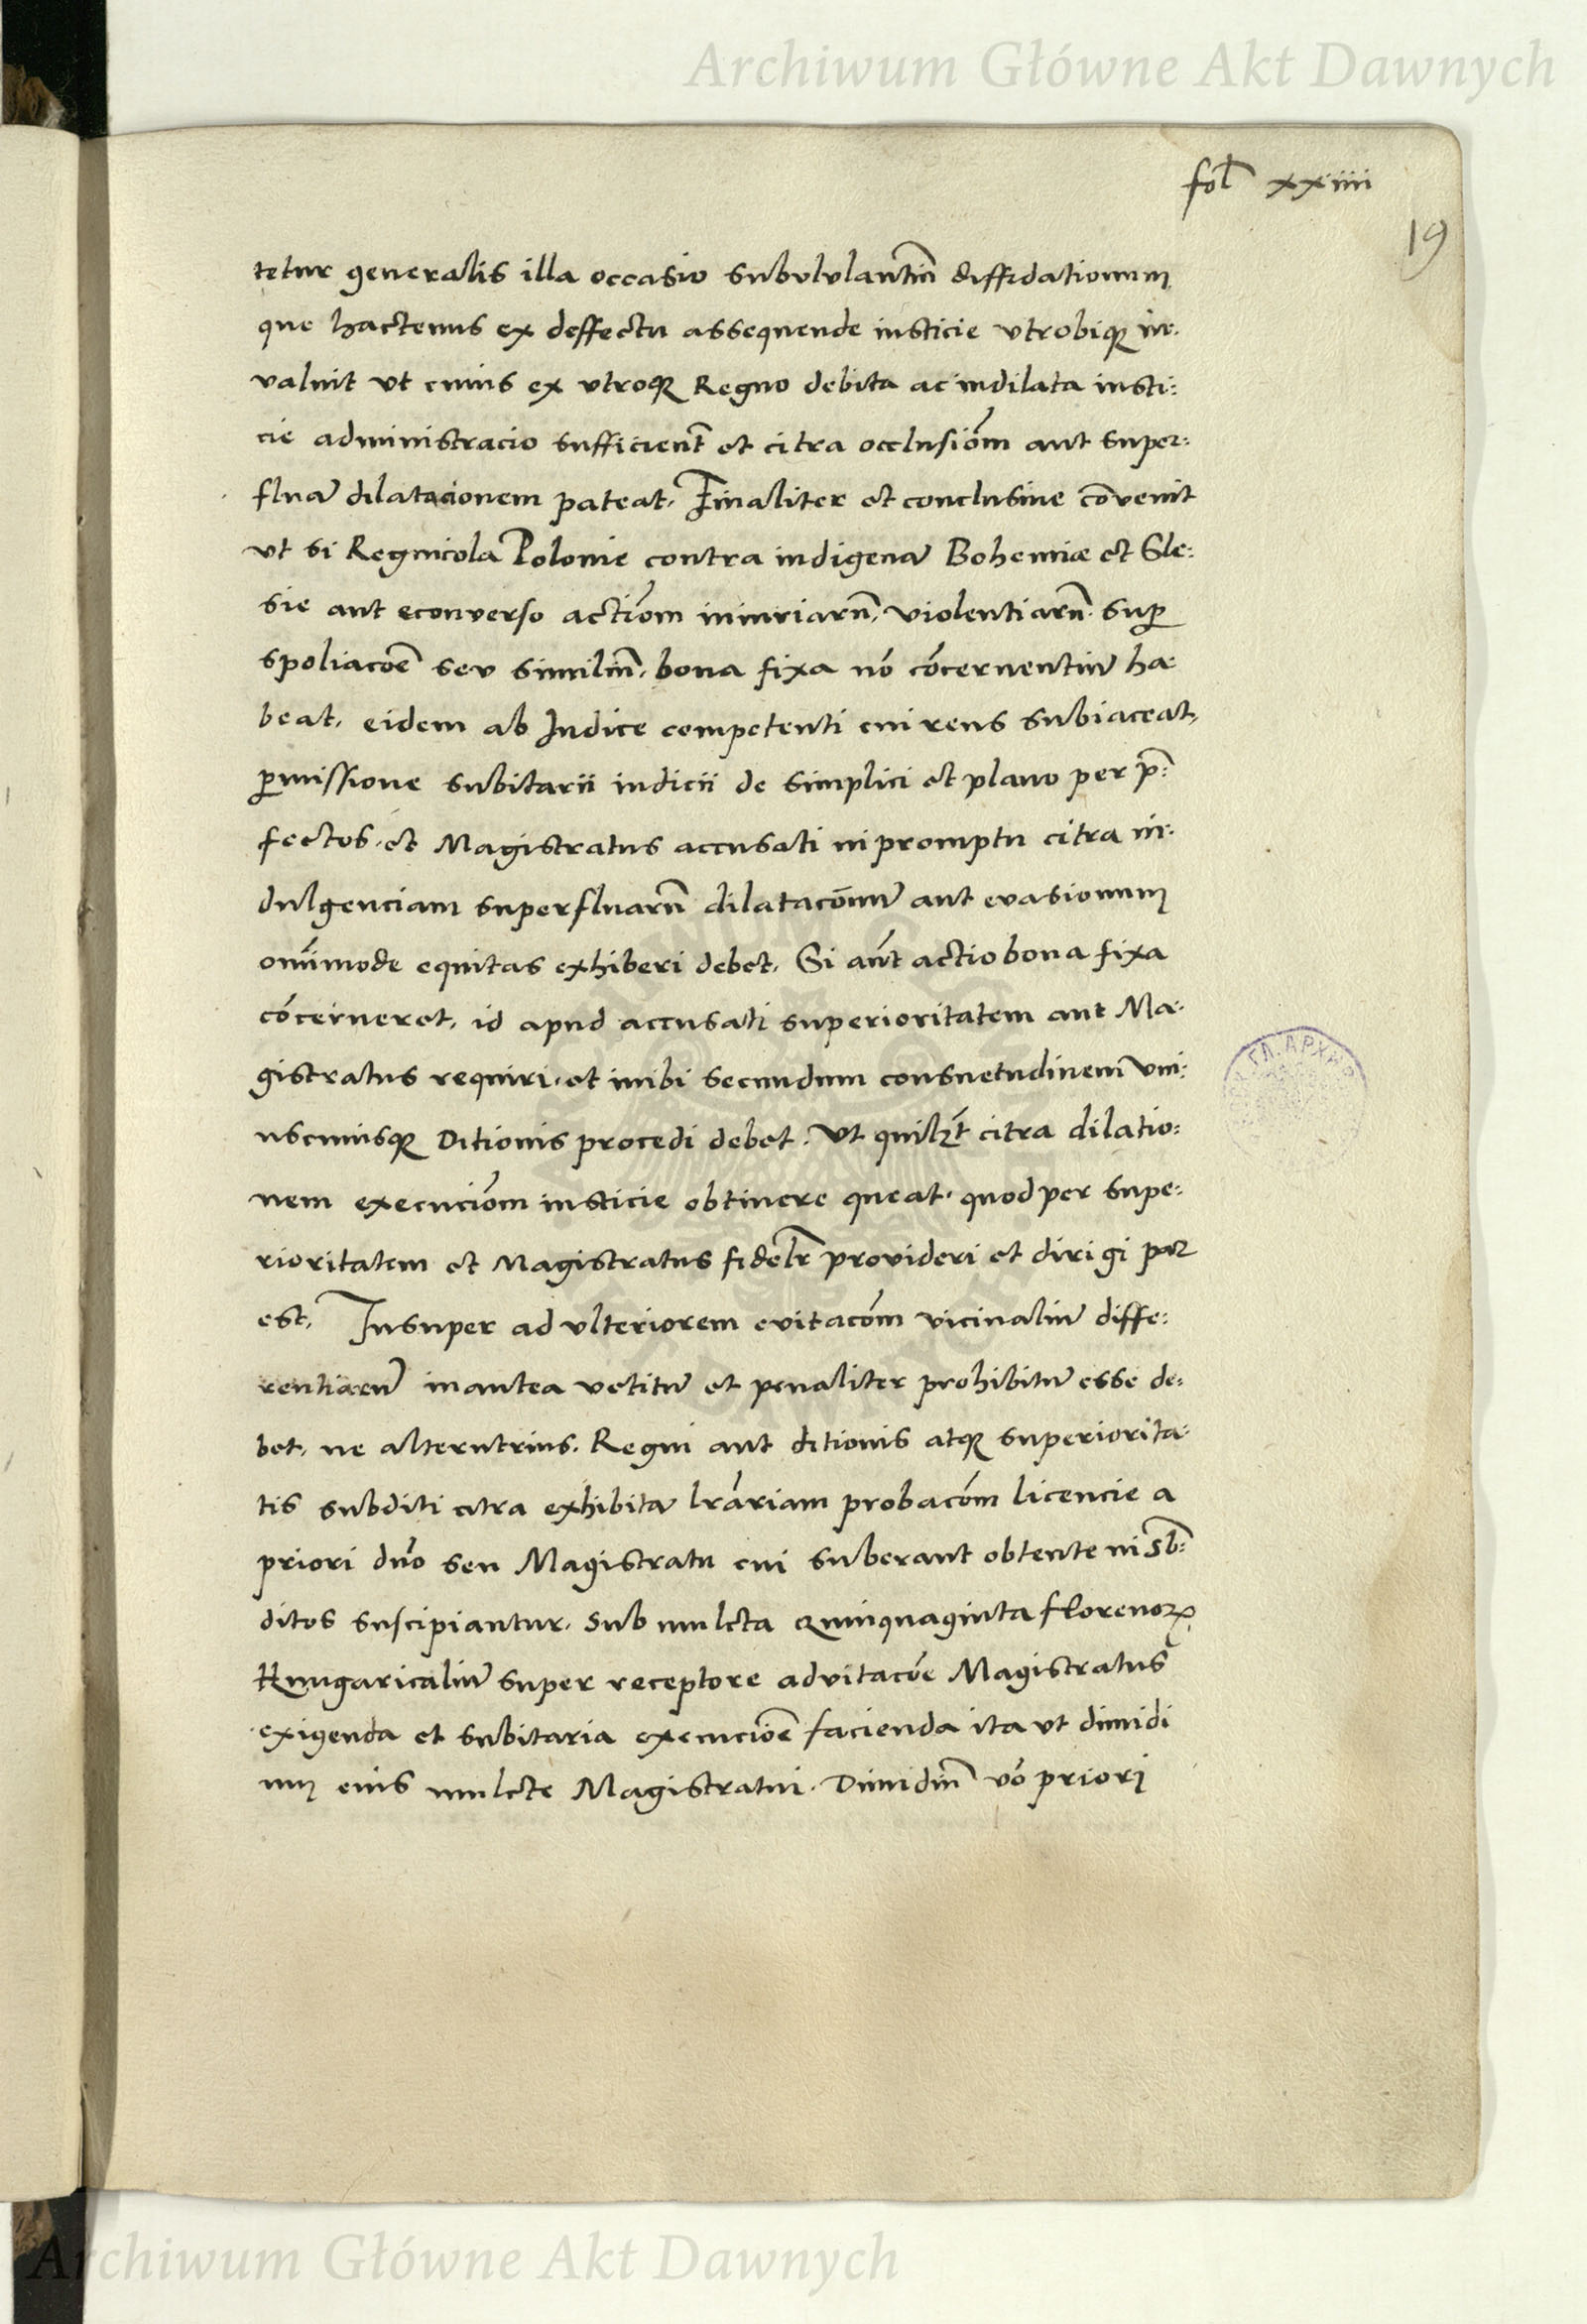 Archiwum Główne Akt Dawnych
fol xxiiii
19
tetur generalis illa occasio subululantiũ diffidationum
que hactenus ex deffectu assequende iusticie vtrobiqꝫ in-
valuit vt cuius ex vtroqꝫ Regno debita ac indilata iusti:
cie administracio sufficient̃ et citra occlusiõm aut super:
fluã dilatacionem pateat. Finaliter et conclusiue cõvenit
vt si Regnicola Polonie contra indigenã Bohemiæ et Sle:
sie aut econverso actiõm iniuriarũ, violentiarũ. suꝑ
spoliacõe seu similiũ, bona fixa nõ cõcernentiũ ha-
beat, eidem ab Iudice competenti cui reus subiaceat,
ꝑmissione subitarii iudicii de simplici et plano per p̃:
fectos. et Magistratus accusati in promptu citra in-
dulgenciam superfluarũ dilatacõnũ aut evasionum
om̃imode equitas exhiberi debet. Si aũt actio bona fixa
cõcerneret, id apud accusati superioritatem aut Ma-
gistratus requiri. et inibi secundum consuetudinem vni:
uscuiusqꝫ Ditionis procedi debet. Vt quilꝫt citra dilatio:
nem execuciõm iusticie obtinere queat. quod per supe:
rioritatem et Magistratus fidelr̃ provideri et dirigi par
est. Insuper ad vlteriorem evitacõm vicinaliũ diffe:
rentiarũ inantea vetitũ et penaliter prohibitũ esse de:
bet. ne alterutrius. Regni aut ditionis atqꝫ superiorita-
tis subditi citra exhibitã lr̃ariam probacõm licencie a
priori dño seu Magistratu cui suberant obtente in sb̃:
ditos suscipiantur. sub mulcta Quinquaginta florenoꝝ
Hungaricaliũ super receptore ad vitacõe Magistratus
exigenda et subitaria execuciõe facienda ita vt dimidi
um eius mulcte Magistratui. Dimidiũ võ priori
Archiwum Główne Akt Dawnych